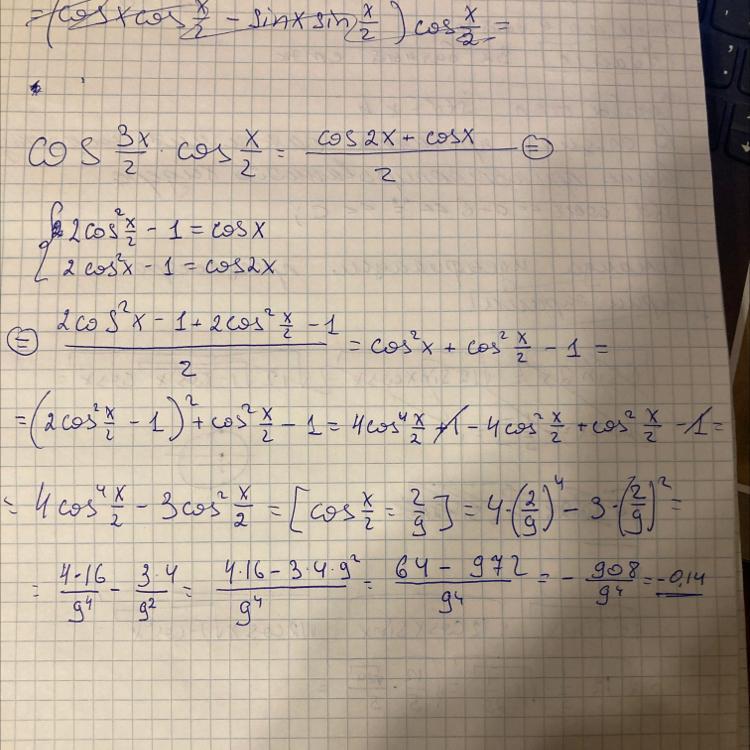 = (cos x cos x/2 - sin x sin x/2) cos x/2 =
cos 3x/2 · cos x/2 = (cos 2x + cos x)/2 =
{ 2cos² x/2 - 1 = cos x
2cos² x - 1 = cos 2x
= (2cos² x - 1 + 2cos² x/2 - 1)/2 = cos² x + cos² x/2 - 1 =
= (2cos² x/2 - 1)² + cos² x/2 - 1 = 4cos⁴ x/2 + 1 - 4cos² x/2 + cos² x/2 - 1 =
= 4cos⁴ x/2 - 3cos² x/2 = [cos x/2 = 2/9] = 4·(2/9)⁴ - 3·(2/9)² =
= 4·16/9⁴ - 3·4/9² = (4·16 - 3·4·9²)/9⁴ = (64 - 972)/9⁴ = - 908/9⁴ = -0,14